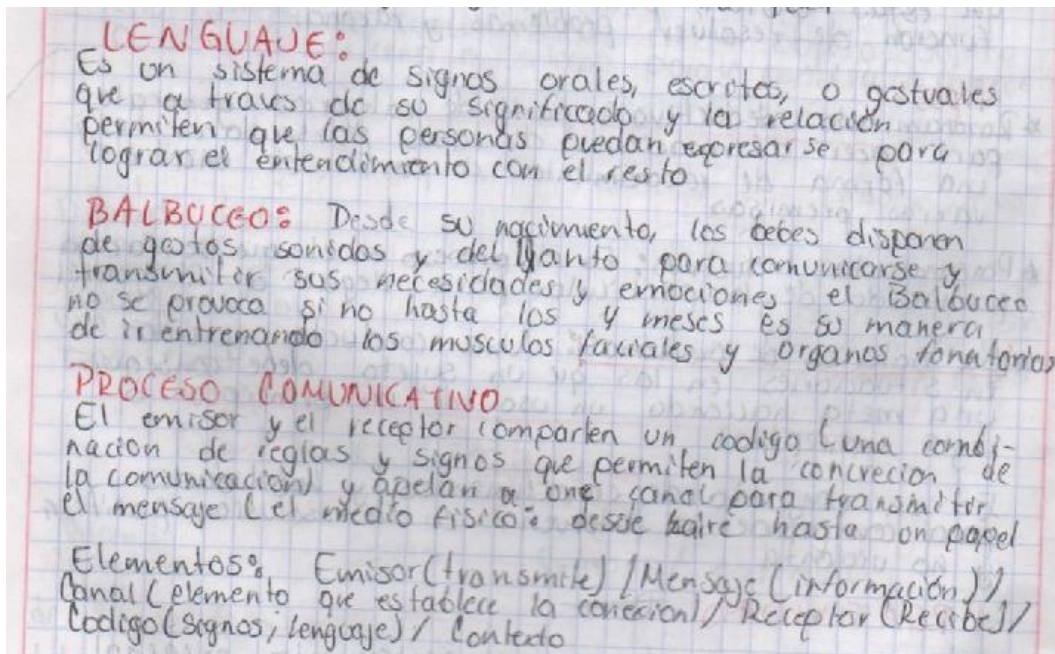 LENGUAJE:
Es un sistema de signos orales, escritos, o gestuales
que a traves de su significado y la relación
permiten que las personas puedan expresarse para
lograr el entendimiento con el resto
BALBUCEO: Desde su nacimiento, los bebes disponen
de gestos sonidos y del llanto para comunicarse y
transmitir sus necesidades y emociones el Balbuceo
no se provoca si no hasta los 4 meses es su manera
de ir entrenando los musculos faciales y organos fonatorios
PROCESO COMUNICATIVO
El emisor y el receptor comparten un codigo (una combi-
nacion de reglas y signos que permiten la concrecion de
la comunicacion) y apelan a one canal para transmitir
el mensaje (el medio fisico: desde aire hasta un papel
Elementos: Emisor (transmite) / Mensaje (información) /
Canal (elemento que establece la conecion) / Receptor (Recibe) /
Codigo (signos, lenguaje) / Contexto